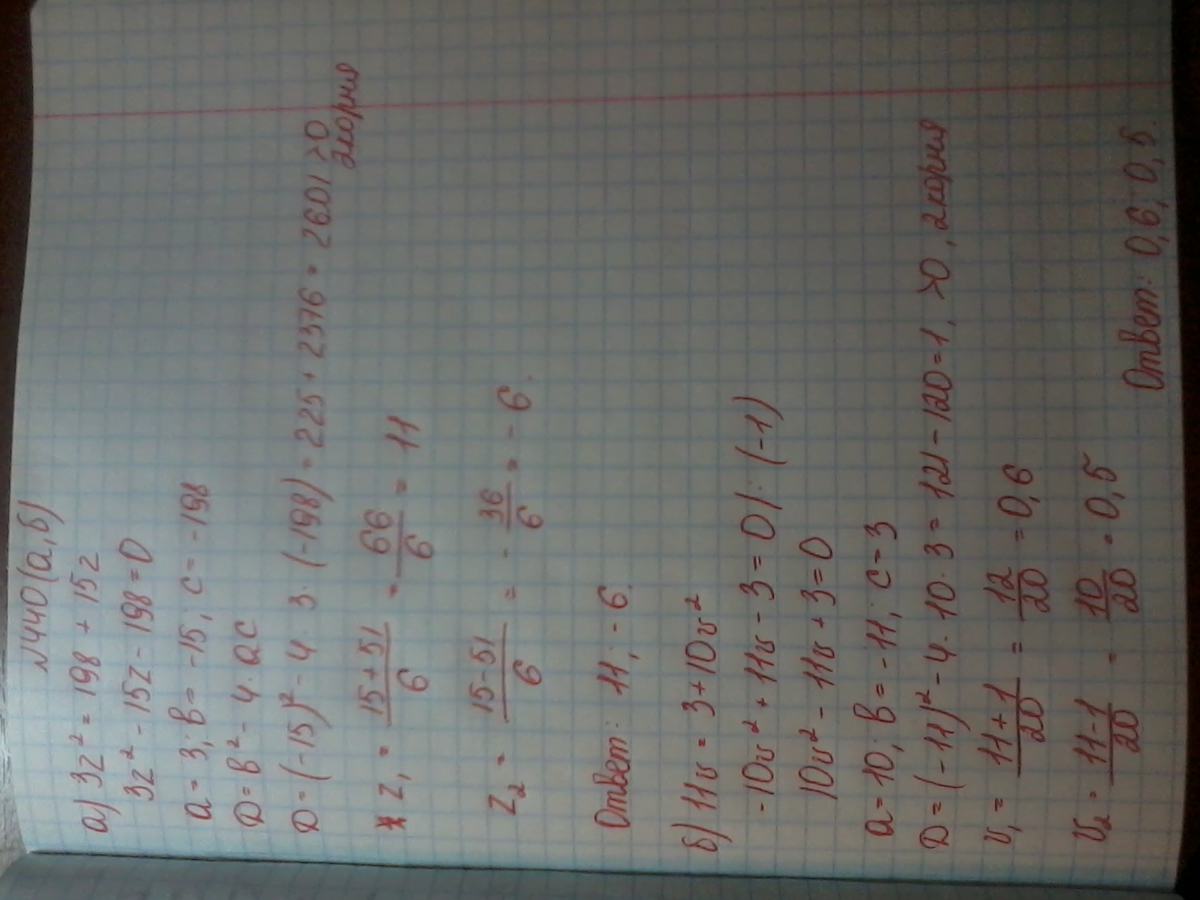 №440(а,б)
а) 3z² = 198 + 15z
3z² - 15z - 198 = 0
a = 3; в = -15; c = -198
D = в² - 4·ac
D = (-15)² - 4·3·(-198) = 225 + 2376 = 2601 >0
2корня
z₁ = (15+51)/6 = 66/6 = 11
z₂ = (15-51)/6 = -36/6 = -6.
Ответ: 11; -6.
б) 11v = 3+10v²
-10v² + 11v - 3 = 0 | :(-1)
10v² - 11v + 3 = 0
a = 10; в = -11; c = 3
D = (-11)² - 4·10·3 = 121 - 120 = 1, >0, 2корня
v₁ = (11+1)/20 = 12/20 = 0,6
v₂ = (11-1)/20 = 10/20 = 0,5
Ответ: 0,6; 0,5.